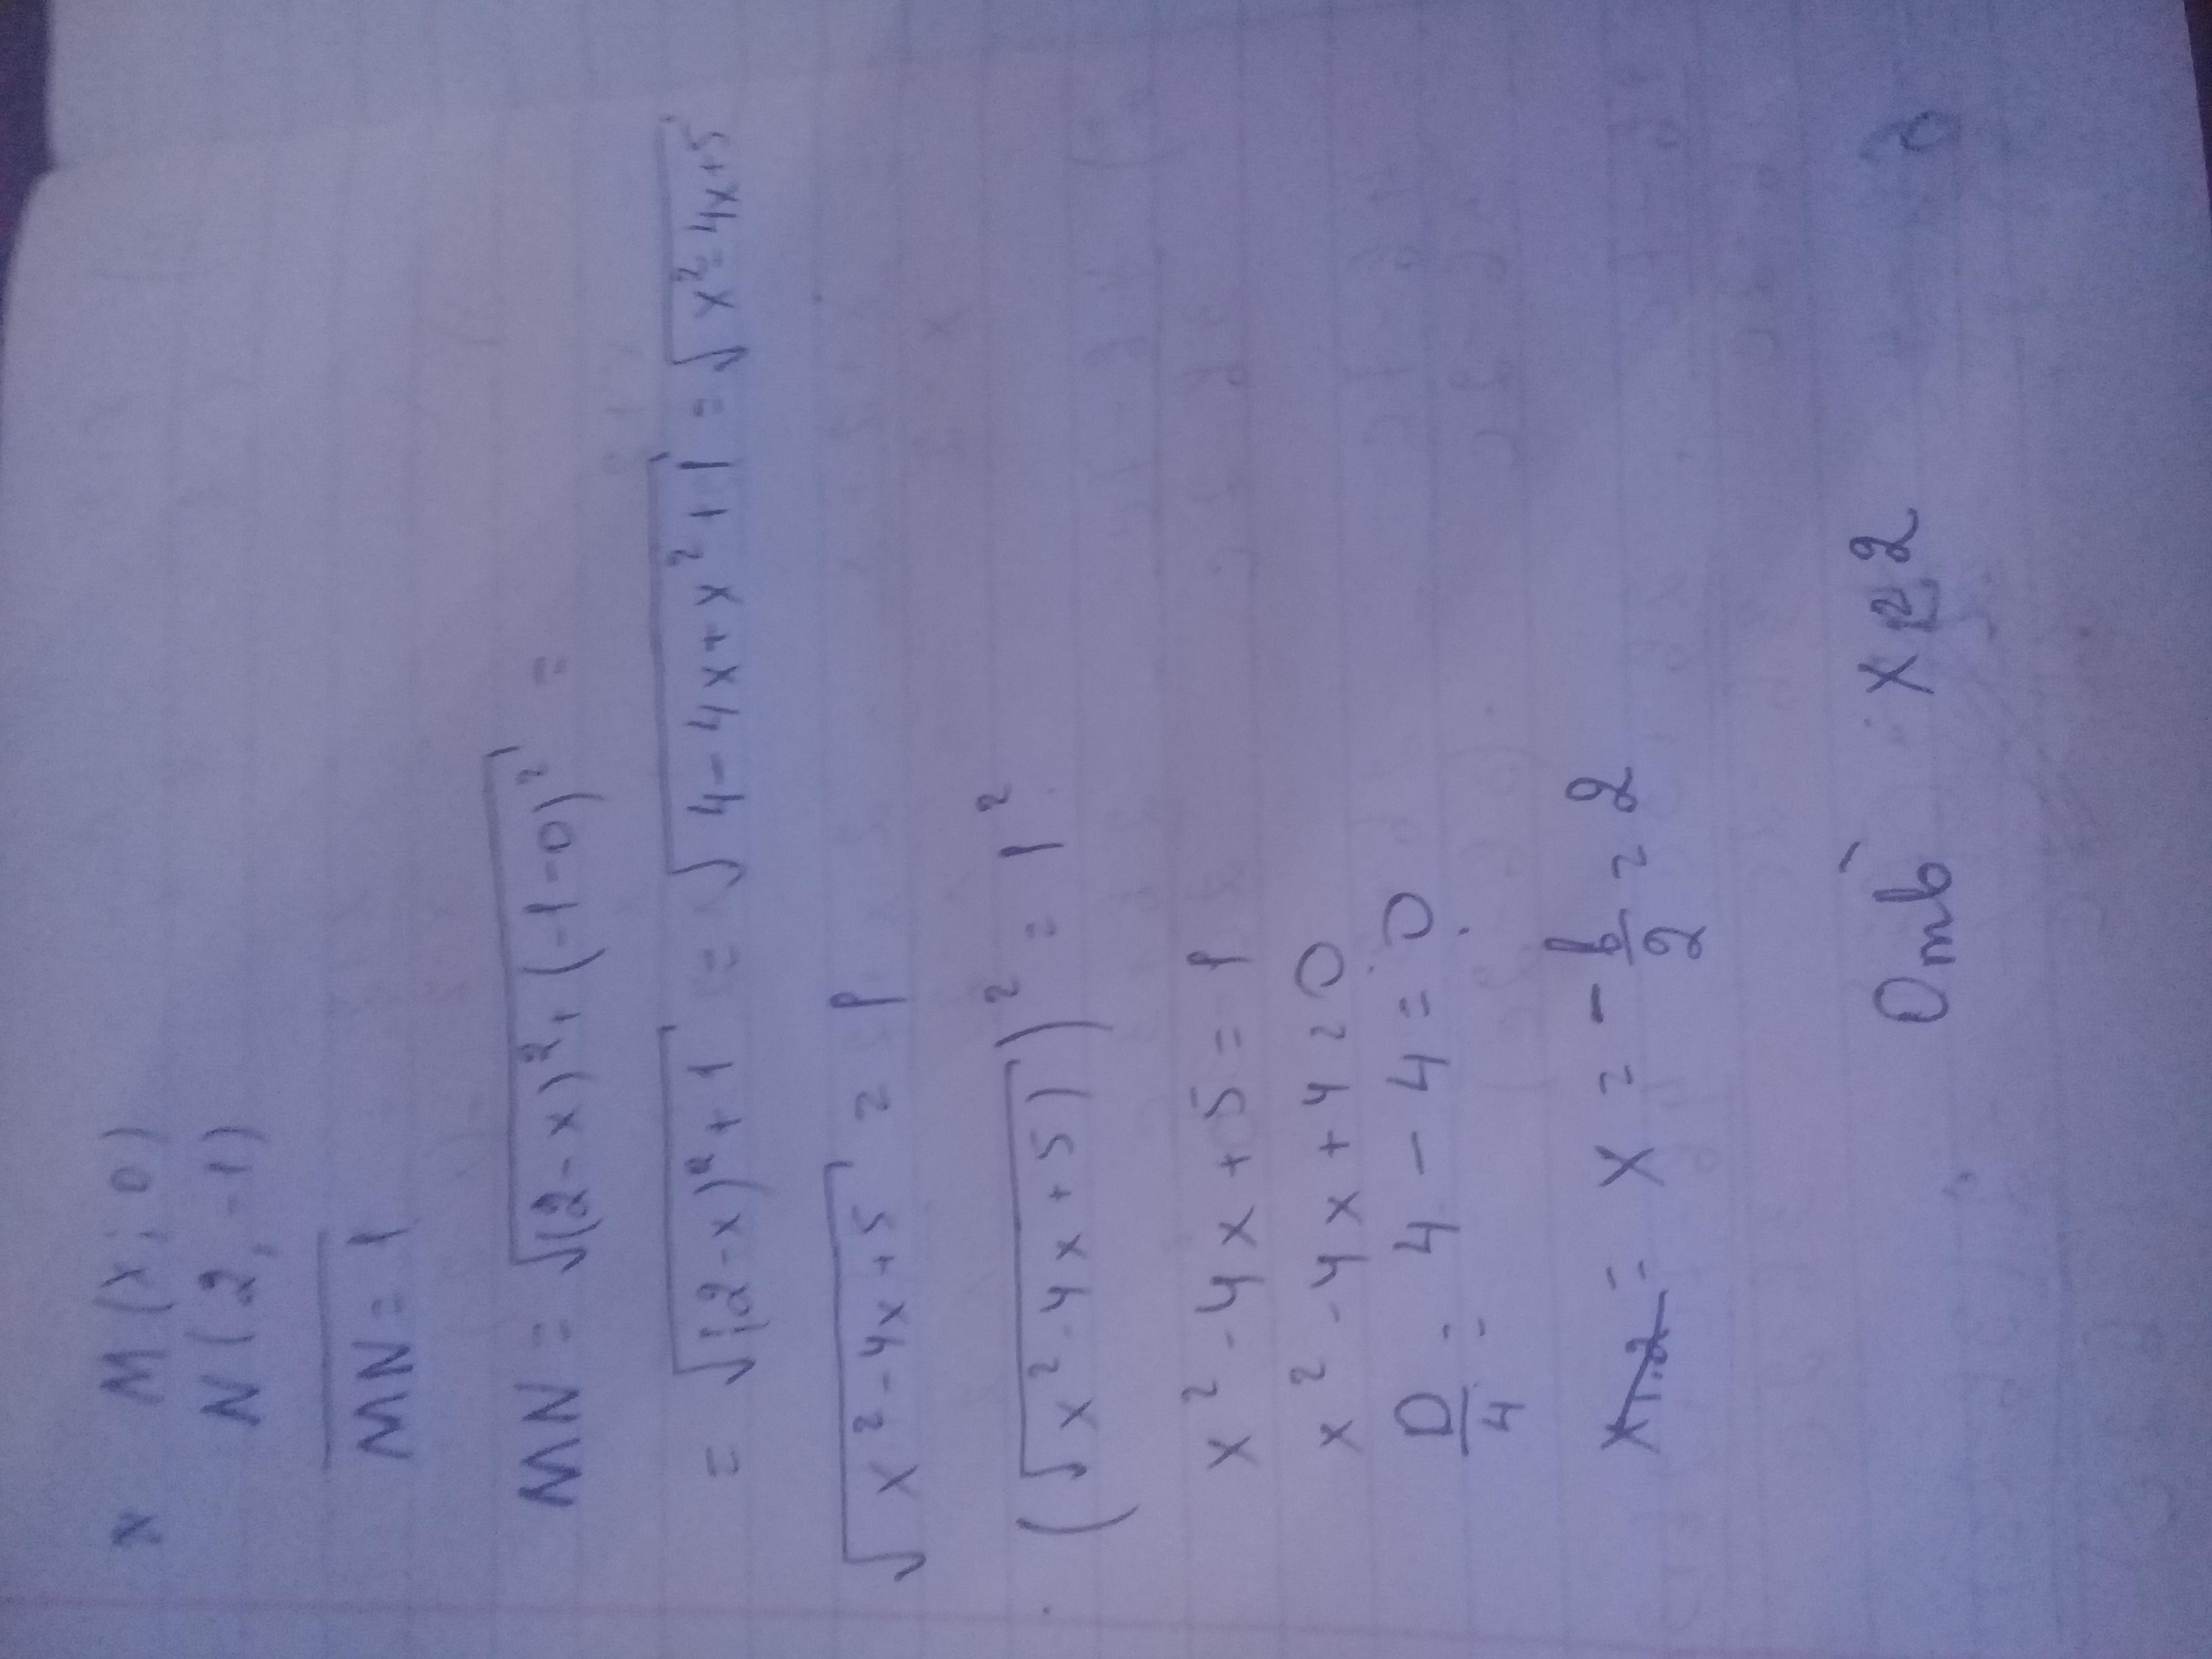 x M(x; 0)
N(2, -1)
MN = 1
MN = √(2-x)²+(-1-0)² =
= √(2-x)²+1 = √4-4x+x²+1 = √x²-4x+5
√x²-4x+5 = 1
(√x²-4x+5)² = 1²
x²-4x+5=1
x²-4x+4=0
D/4 = 4-4=0
x = -b/2 = 2
Отв x=2